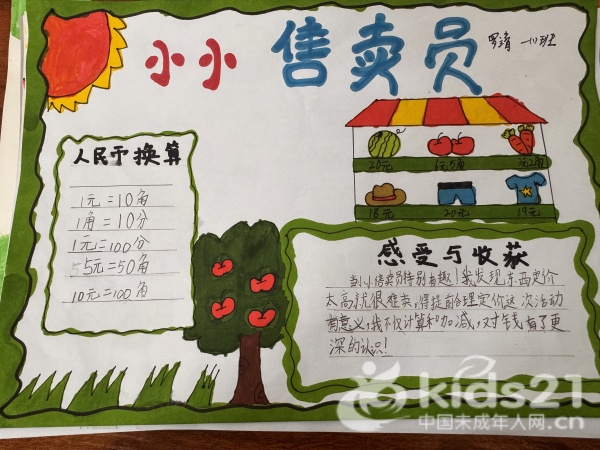 小小 售卖员
罗靖 一(1)班
人民币换算
1元=10角
1角=10分
1元=100分
5元=50角
10元=100角
20元 1元5角 2元2角
18元 20元 19元
感受与收获
当小小售卖员特别有趣！我发现东西定价
太高就很难卖,得提前合理定价这次活动
有意义,我不仅计算和加减,对钱有了更
深的认识！
kids21
中国未成年人网.cn